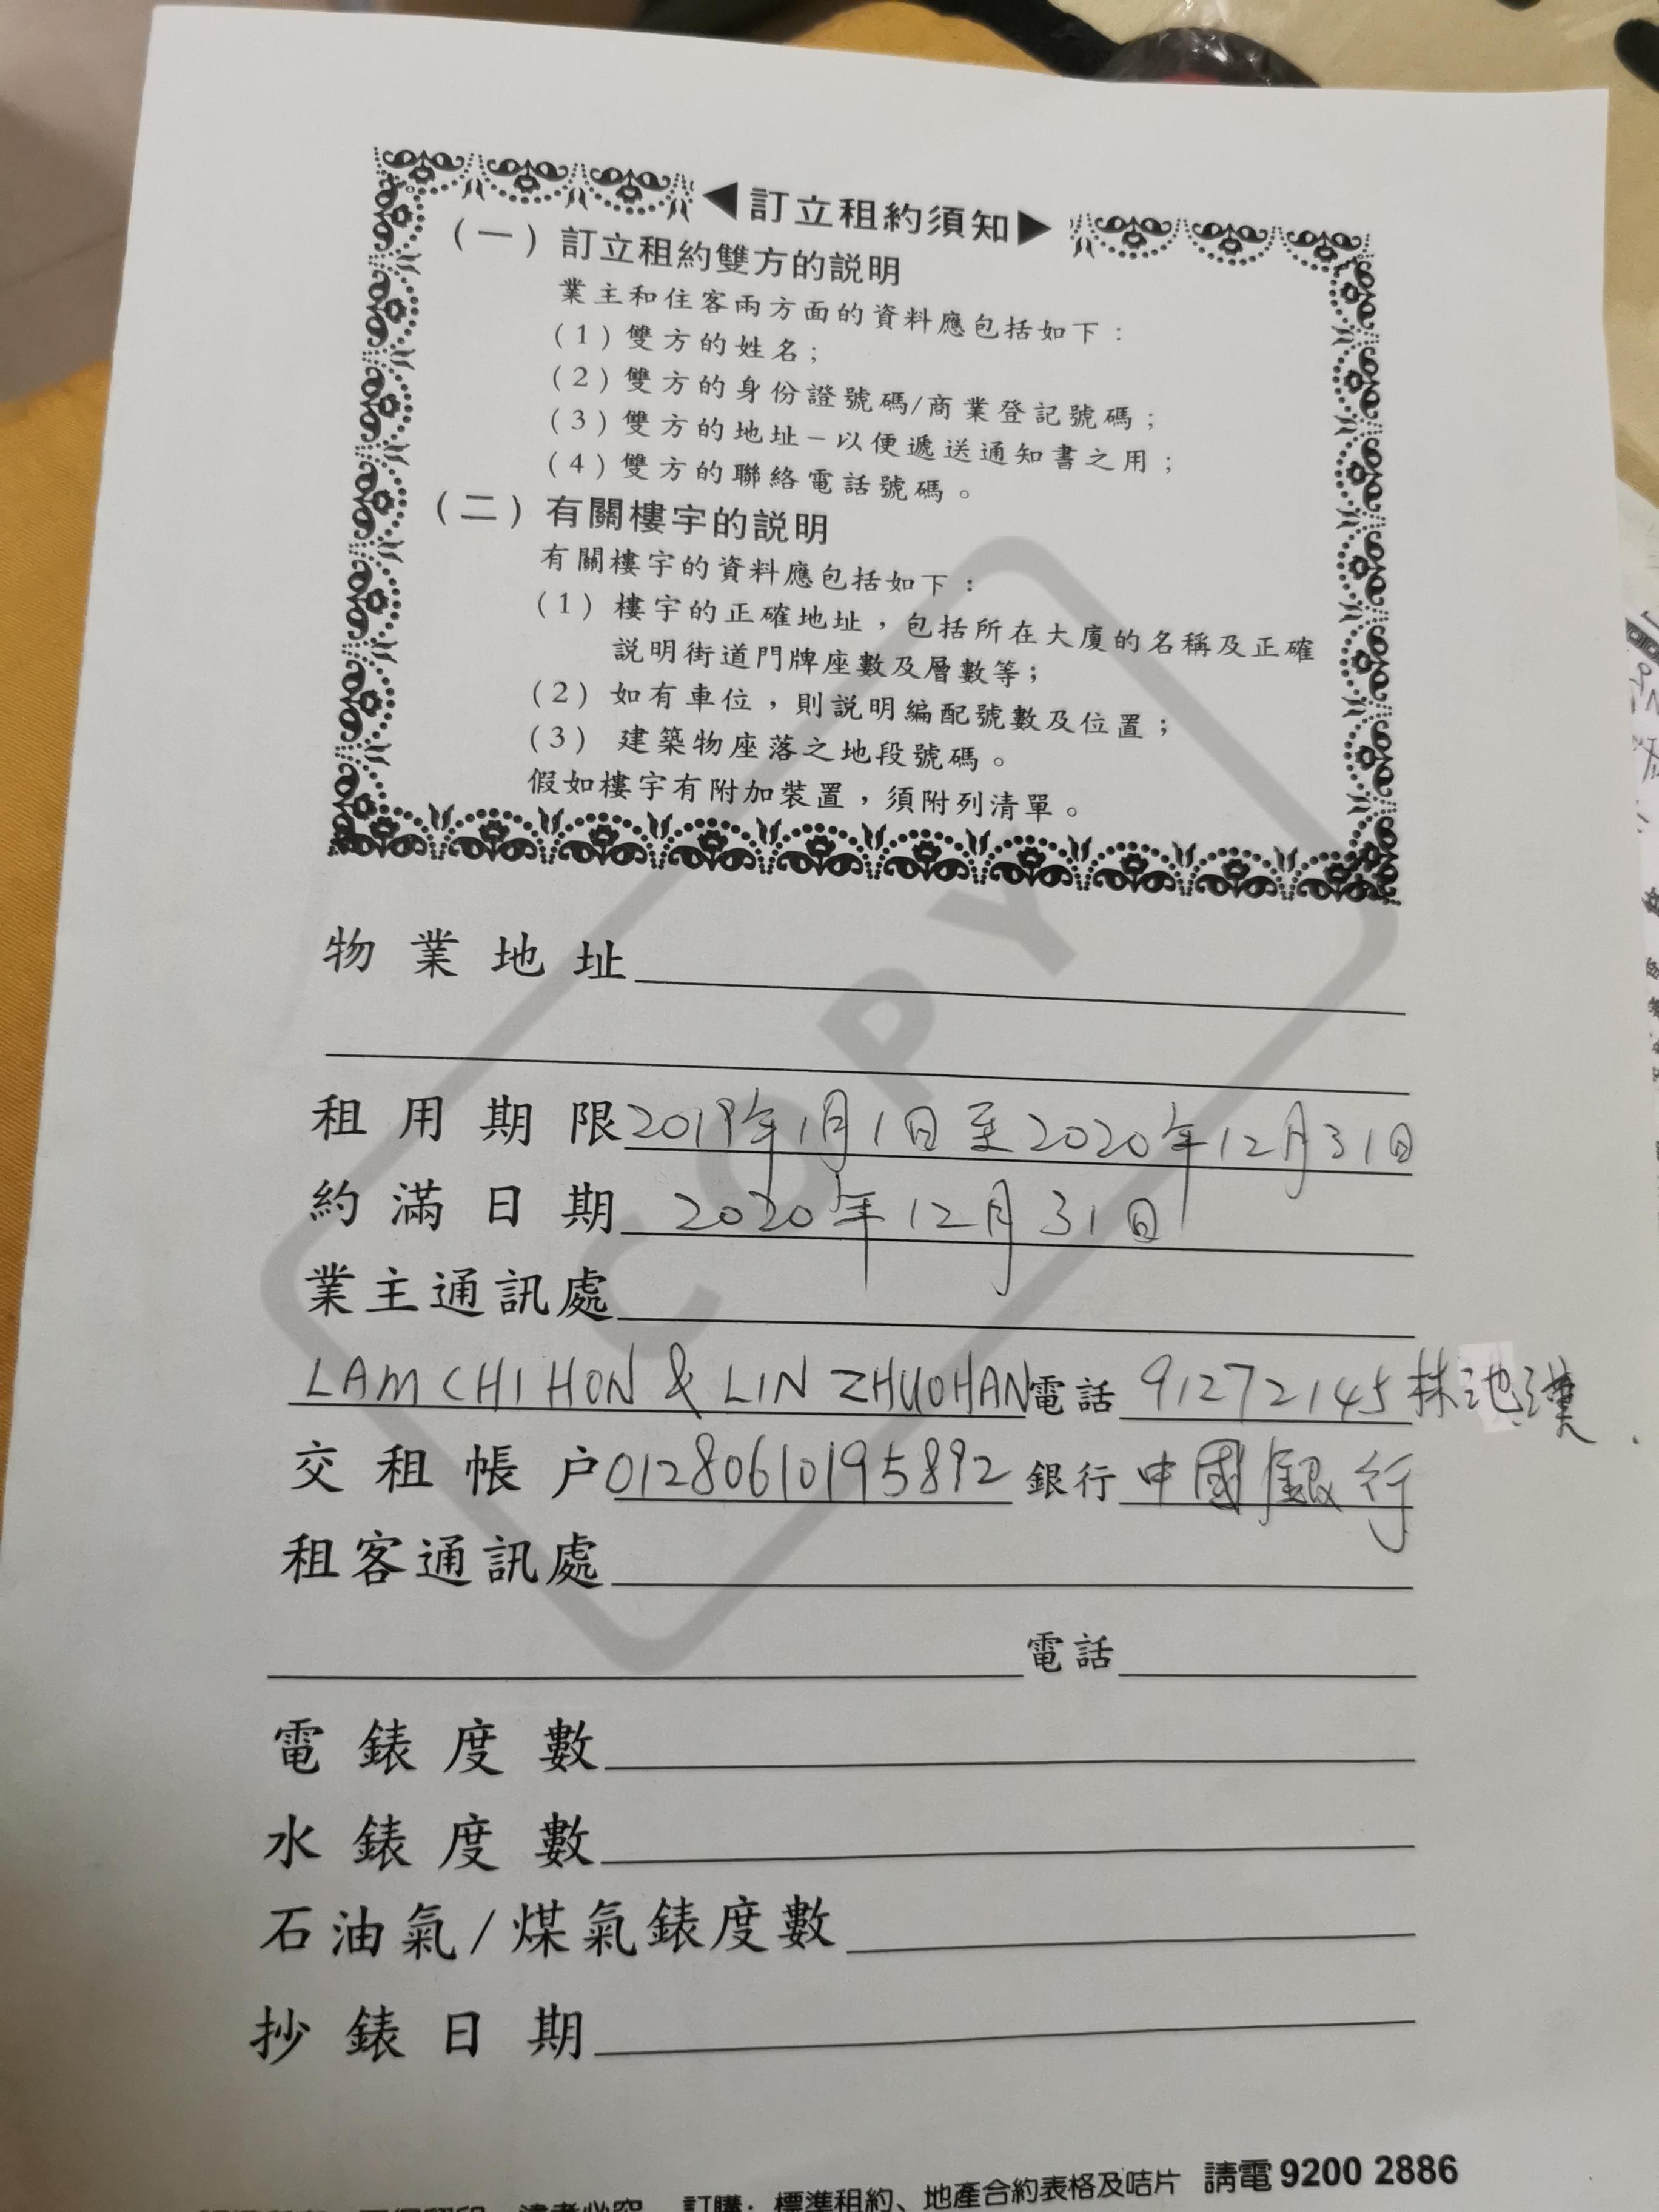 ◀訂立租約須知▶
(一)訂立租約雙方的説明
業主和住客兩方面的資料應包括如下：
(1)雙方的姓名；
(2)雙方的身份證號碼/商業登記號碼；
(3)雙方的地址－以便遞送通知書之用；
(4)雙方的聯絡電話號碼。
(二)有關樓宇的説明
有關樓宇的資料應包括如下：
(1)樓宇的正確地址，包括所在大廈的名稱及正確
説明街道門牌座數及層數等；
(2)如有車位，則説明編配號數及位置；
(3)建築物座落之地段號碼。
假如樓宇有附加裝置，須附列清單。
COPY
物業地址
租用期限2019年1月1日至2020年12月31日
約滿日期 2020年12月31日
業主通訊處
LAM CHI HON & LIN ZHUOHAN電話 91272145 林池漢
交租帳户01280610195892 銀行 中國銀行
租客通訊處
電話
電錶度數
水錶度數
石油氣/煤氣錶度數
抄錶日期
訂購：標準租約、地產合約表格及咭片 請電 9200 2886